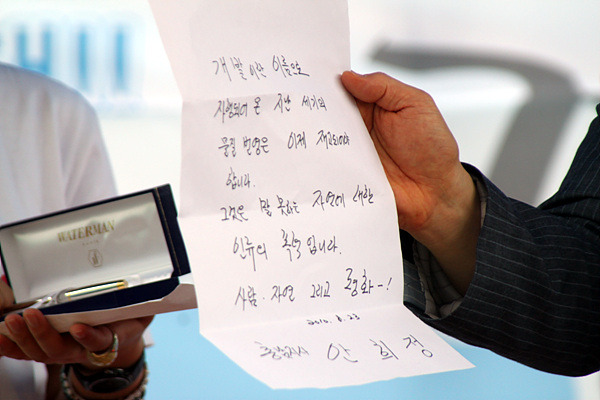 개발이란 이름으로
자행되어 온 지난 세기의
물질 번영은 이제 재고되어야
합니다.
그것은 말 못하는 자연에 대한
인류의 폭력입니다.
사람·자연 그리고 평화-!
2010. 8. 23
충남지사 안희정
WATERMAN